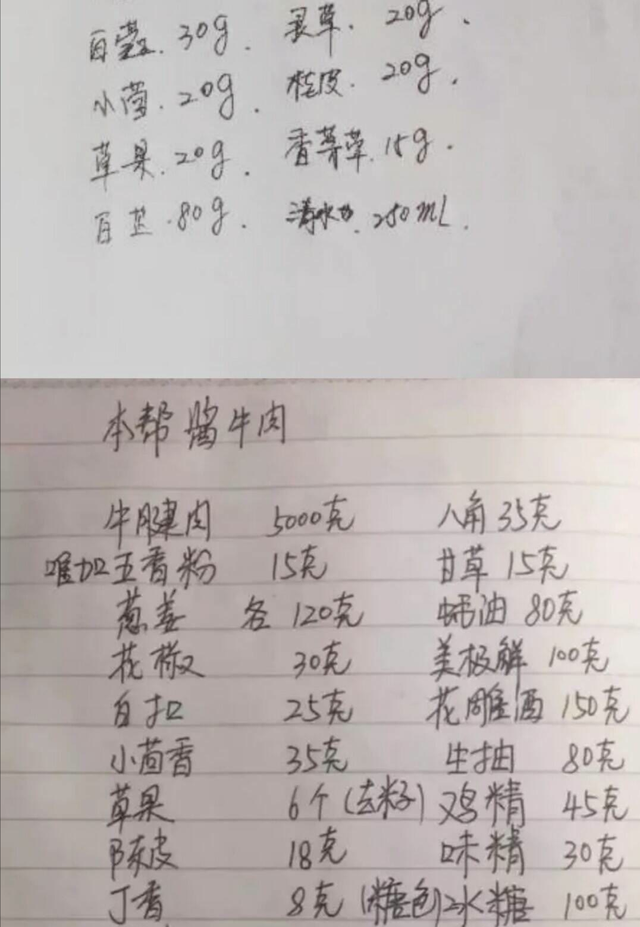 30g. 灵草. 20g.
小茴. 20g. 桂皮. 20g.
草果. 20g. 香茅草. 15g.
百芷. 80g. 清水 250mL.
本帮酱牛肉
牛腱肉 5000克 八角 35克
唯加五香粉 15克 甘草 15克
葱姜 各 120克 蚝油 80克
花椒 30克 美极鲜 100克
白扣 25克 花雕酒 150克
小茴香 35克 生抽 80克
草果 6个(去籽) 鸡精 45克
陈皮 18克 味精 30克
丁香 8克 (糖色)冰糖 100克